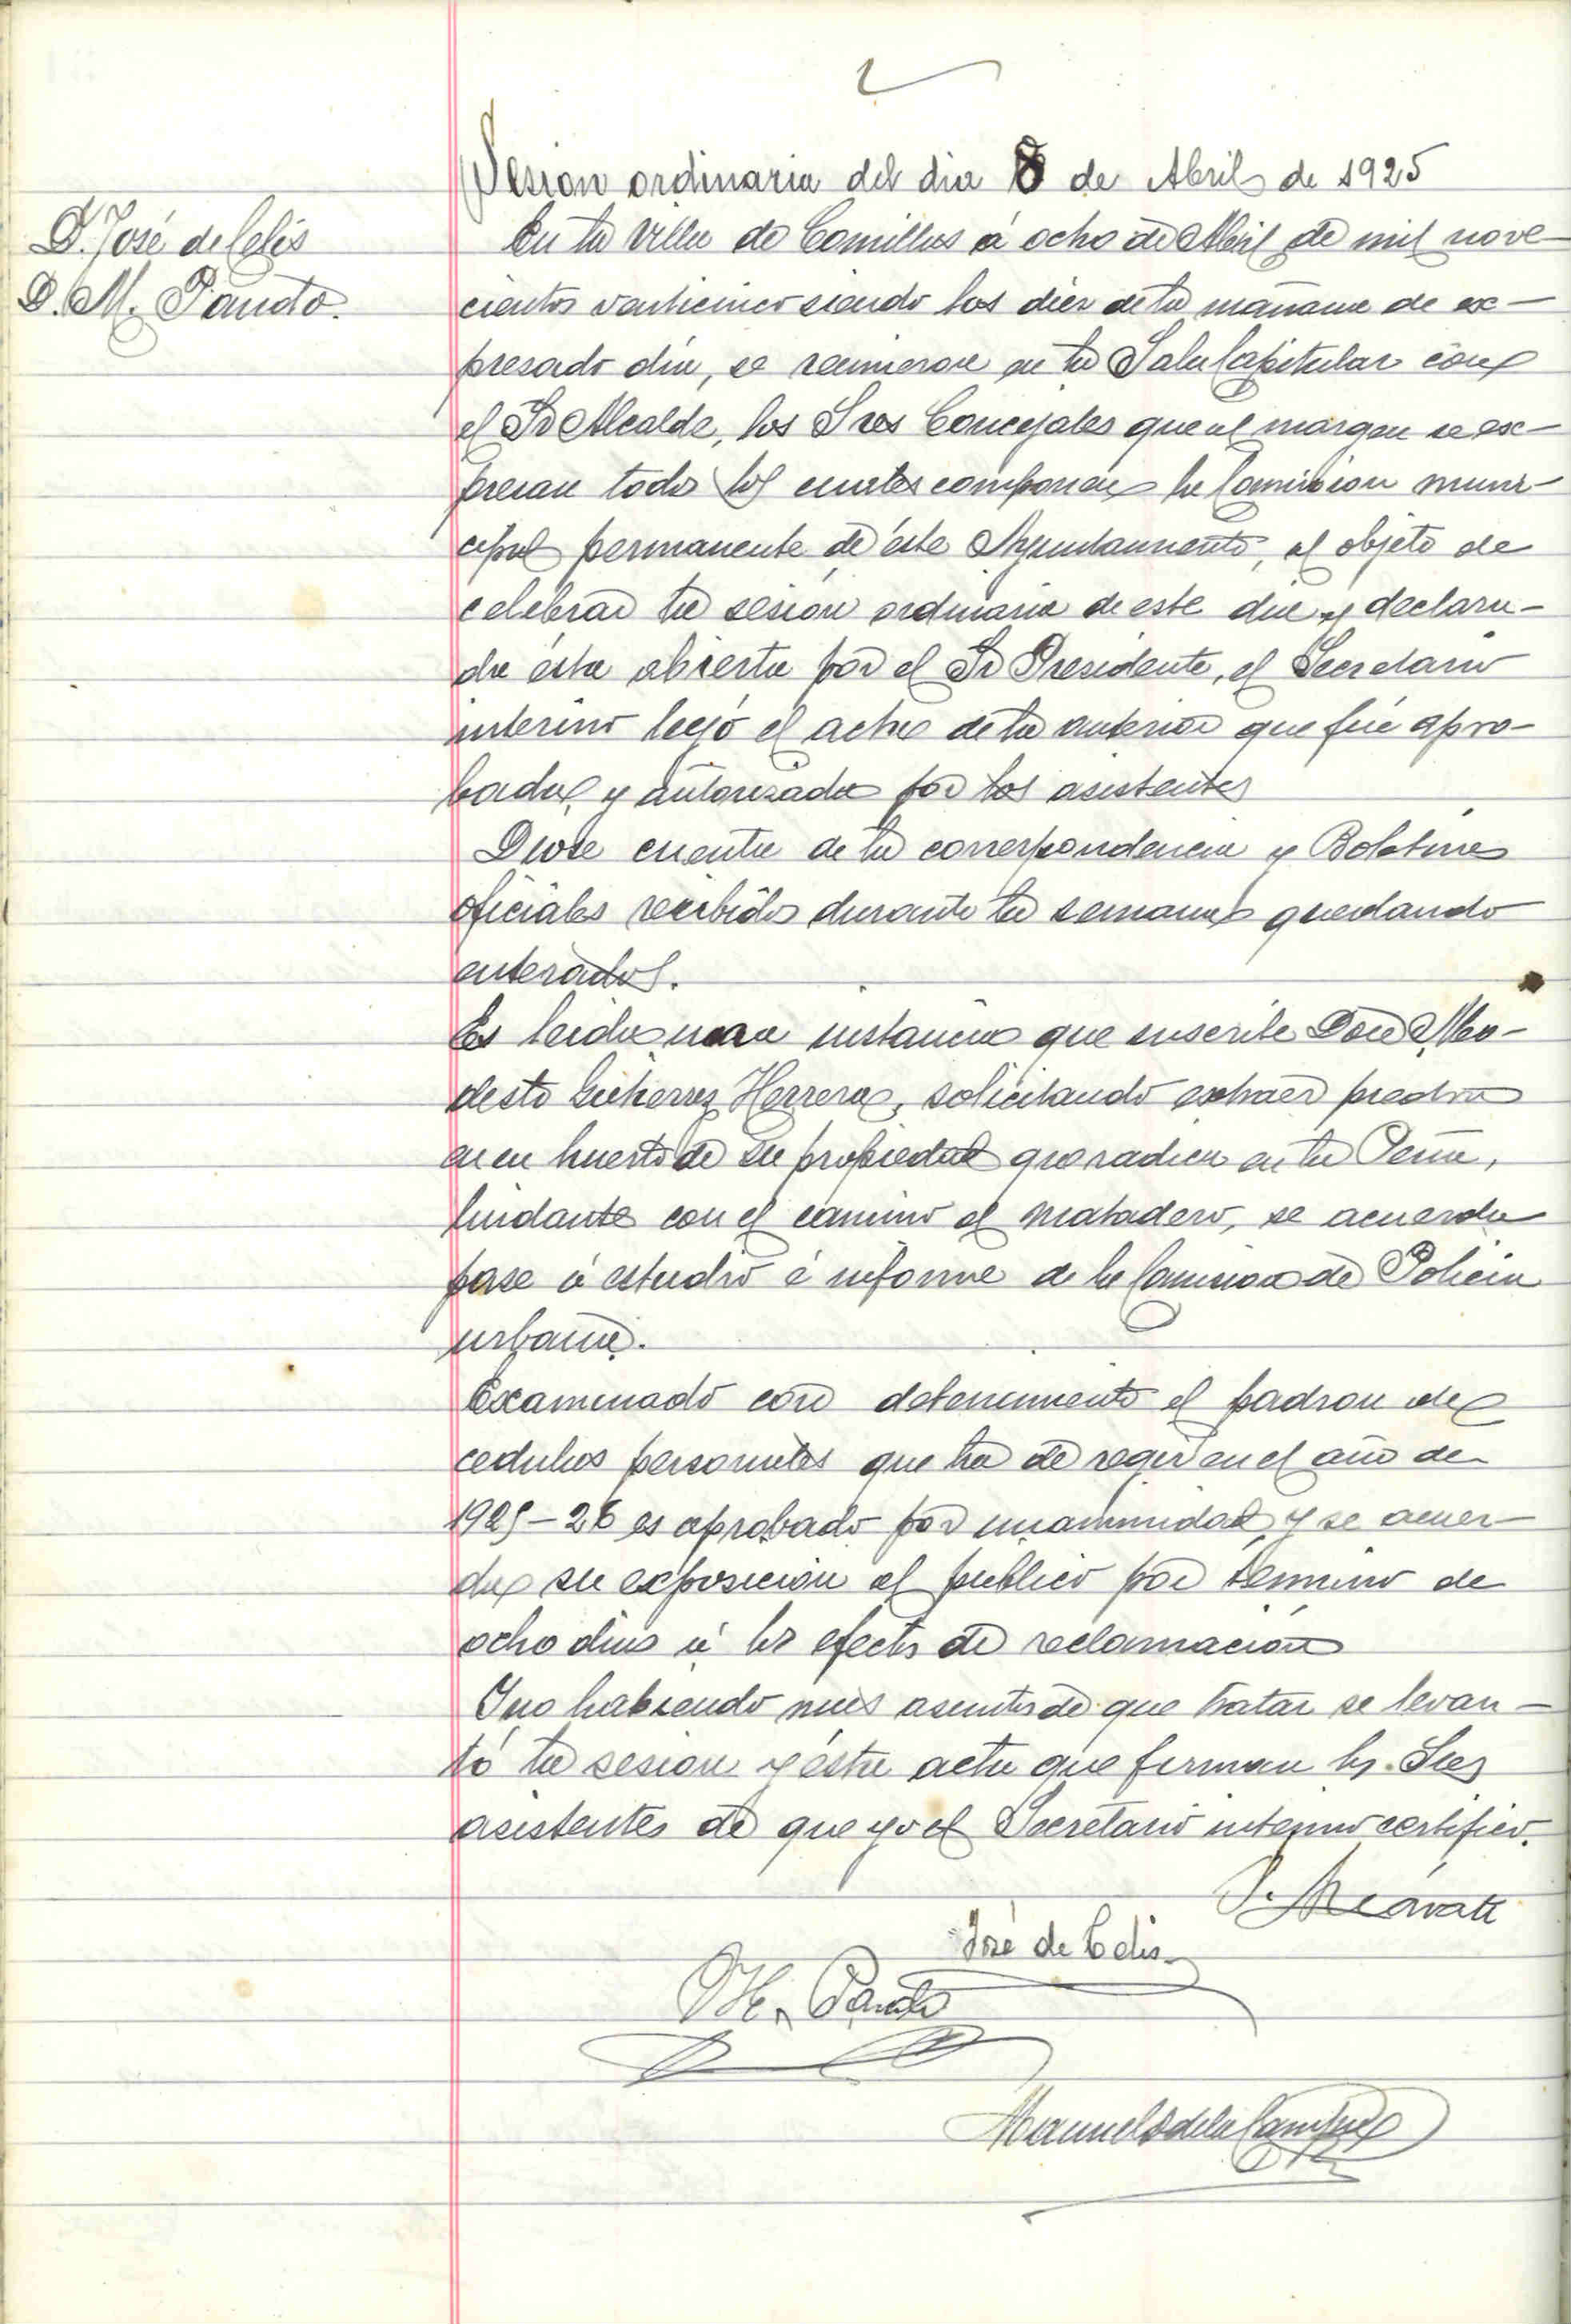 Sesion ordinaria del dia 8 de Abril de 1925
D. José de Celis
D. M. Pando.
En la Villa de Comillas á ocho de Abril de mil nove-
cientos veinticinco siendo las diez de la mañana de ex-
presado día, se reunieron en la Sala Capitular con
el Sr Alcalde, los Sres Concejales que al margen se ex-
presan todos los cuales componen la Comision muni-
cipal permanente de éste Ayuntamiento, al objeto de
celebrar la sesión ordinaria de este dia y declara-
da ésta abierta por el Sr Presidente, el Secretario
interino leyó el acta de la anterior que fué apro-
bada y autorizada por los asistentes
Diose cuenta de la correspondencia y Boletines
oficiales recibidos durante la semana quedando
enterados.
Es leida una instancia que suscribe Don Mo-
desto Gutierrez Herrera, solicitando extraer piedra
en un huerto de su propiedad que radica en la Peña,
lindante con el camino al matadero, se acuerda
pase á estudio é informe de la Comision de Policia
urbana.
Examinado con detenimiento el padron de
cedulas personales que ha de regir en el año de
1925-26 es aprobado por unanimidad y se acuer-
da su exposición al público por término de
ocho dias á los efectos de reclamación
Y no habiendo mas asuntos de que tratar se levan-
tó la sesion y ésta acta que firman los Sres
asistentes de que yo el Secretario interino certifico.
José de Celis
M. Pando
Manuel de la